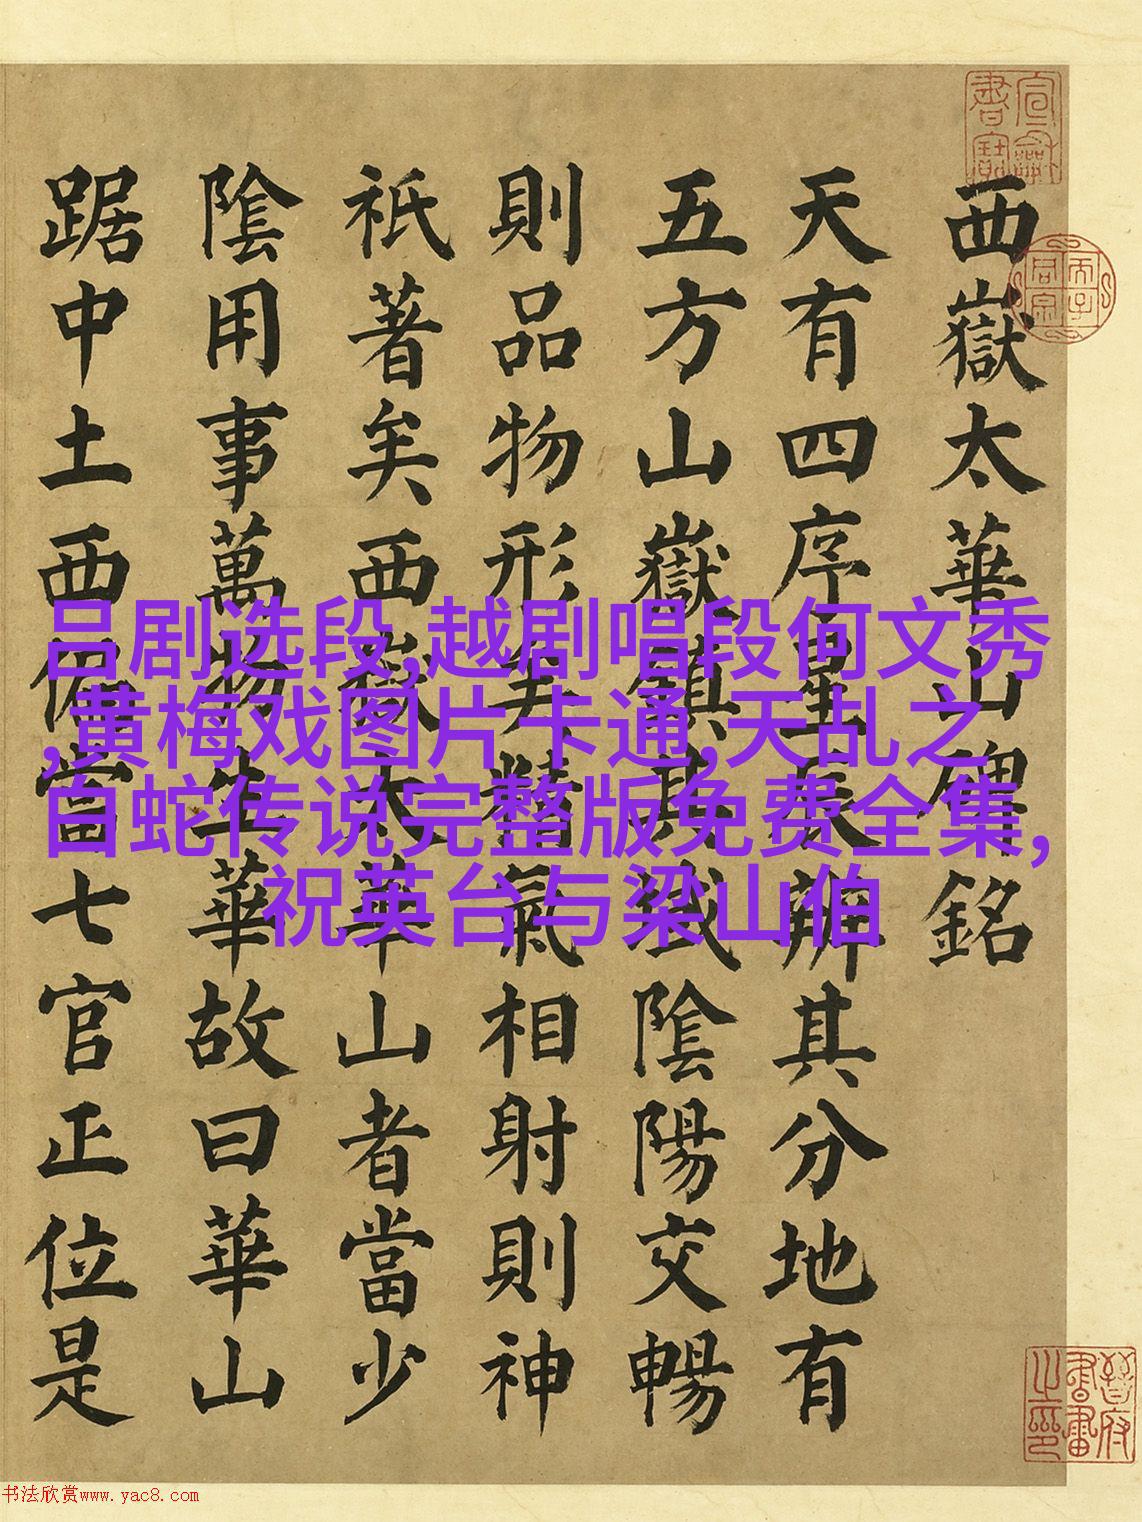 西嶽太華山碑銘
天有四序星辰辨其分地有
五方山嶽鎮其域陰陽交暢
則品物形矣精氣相射則神
祇著矣西嶽太華山者當少
陰用事萬物生華故曰華山
踞中土西偏當七官正位是
吕剧选段,越剧唱段何文秀
,黄梅戏图片卡通,天乩之
白蛇传说完整版免费全集,
祝英台与梁山伯
晉府
書畫
之印
书法欣赏www.yac8.com